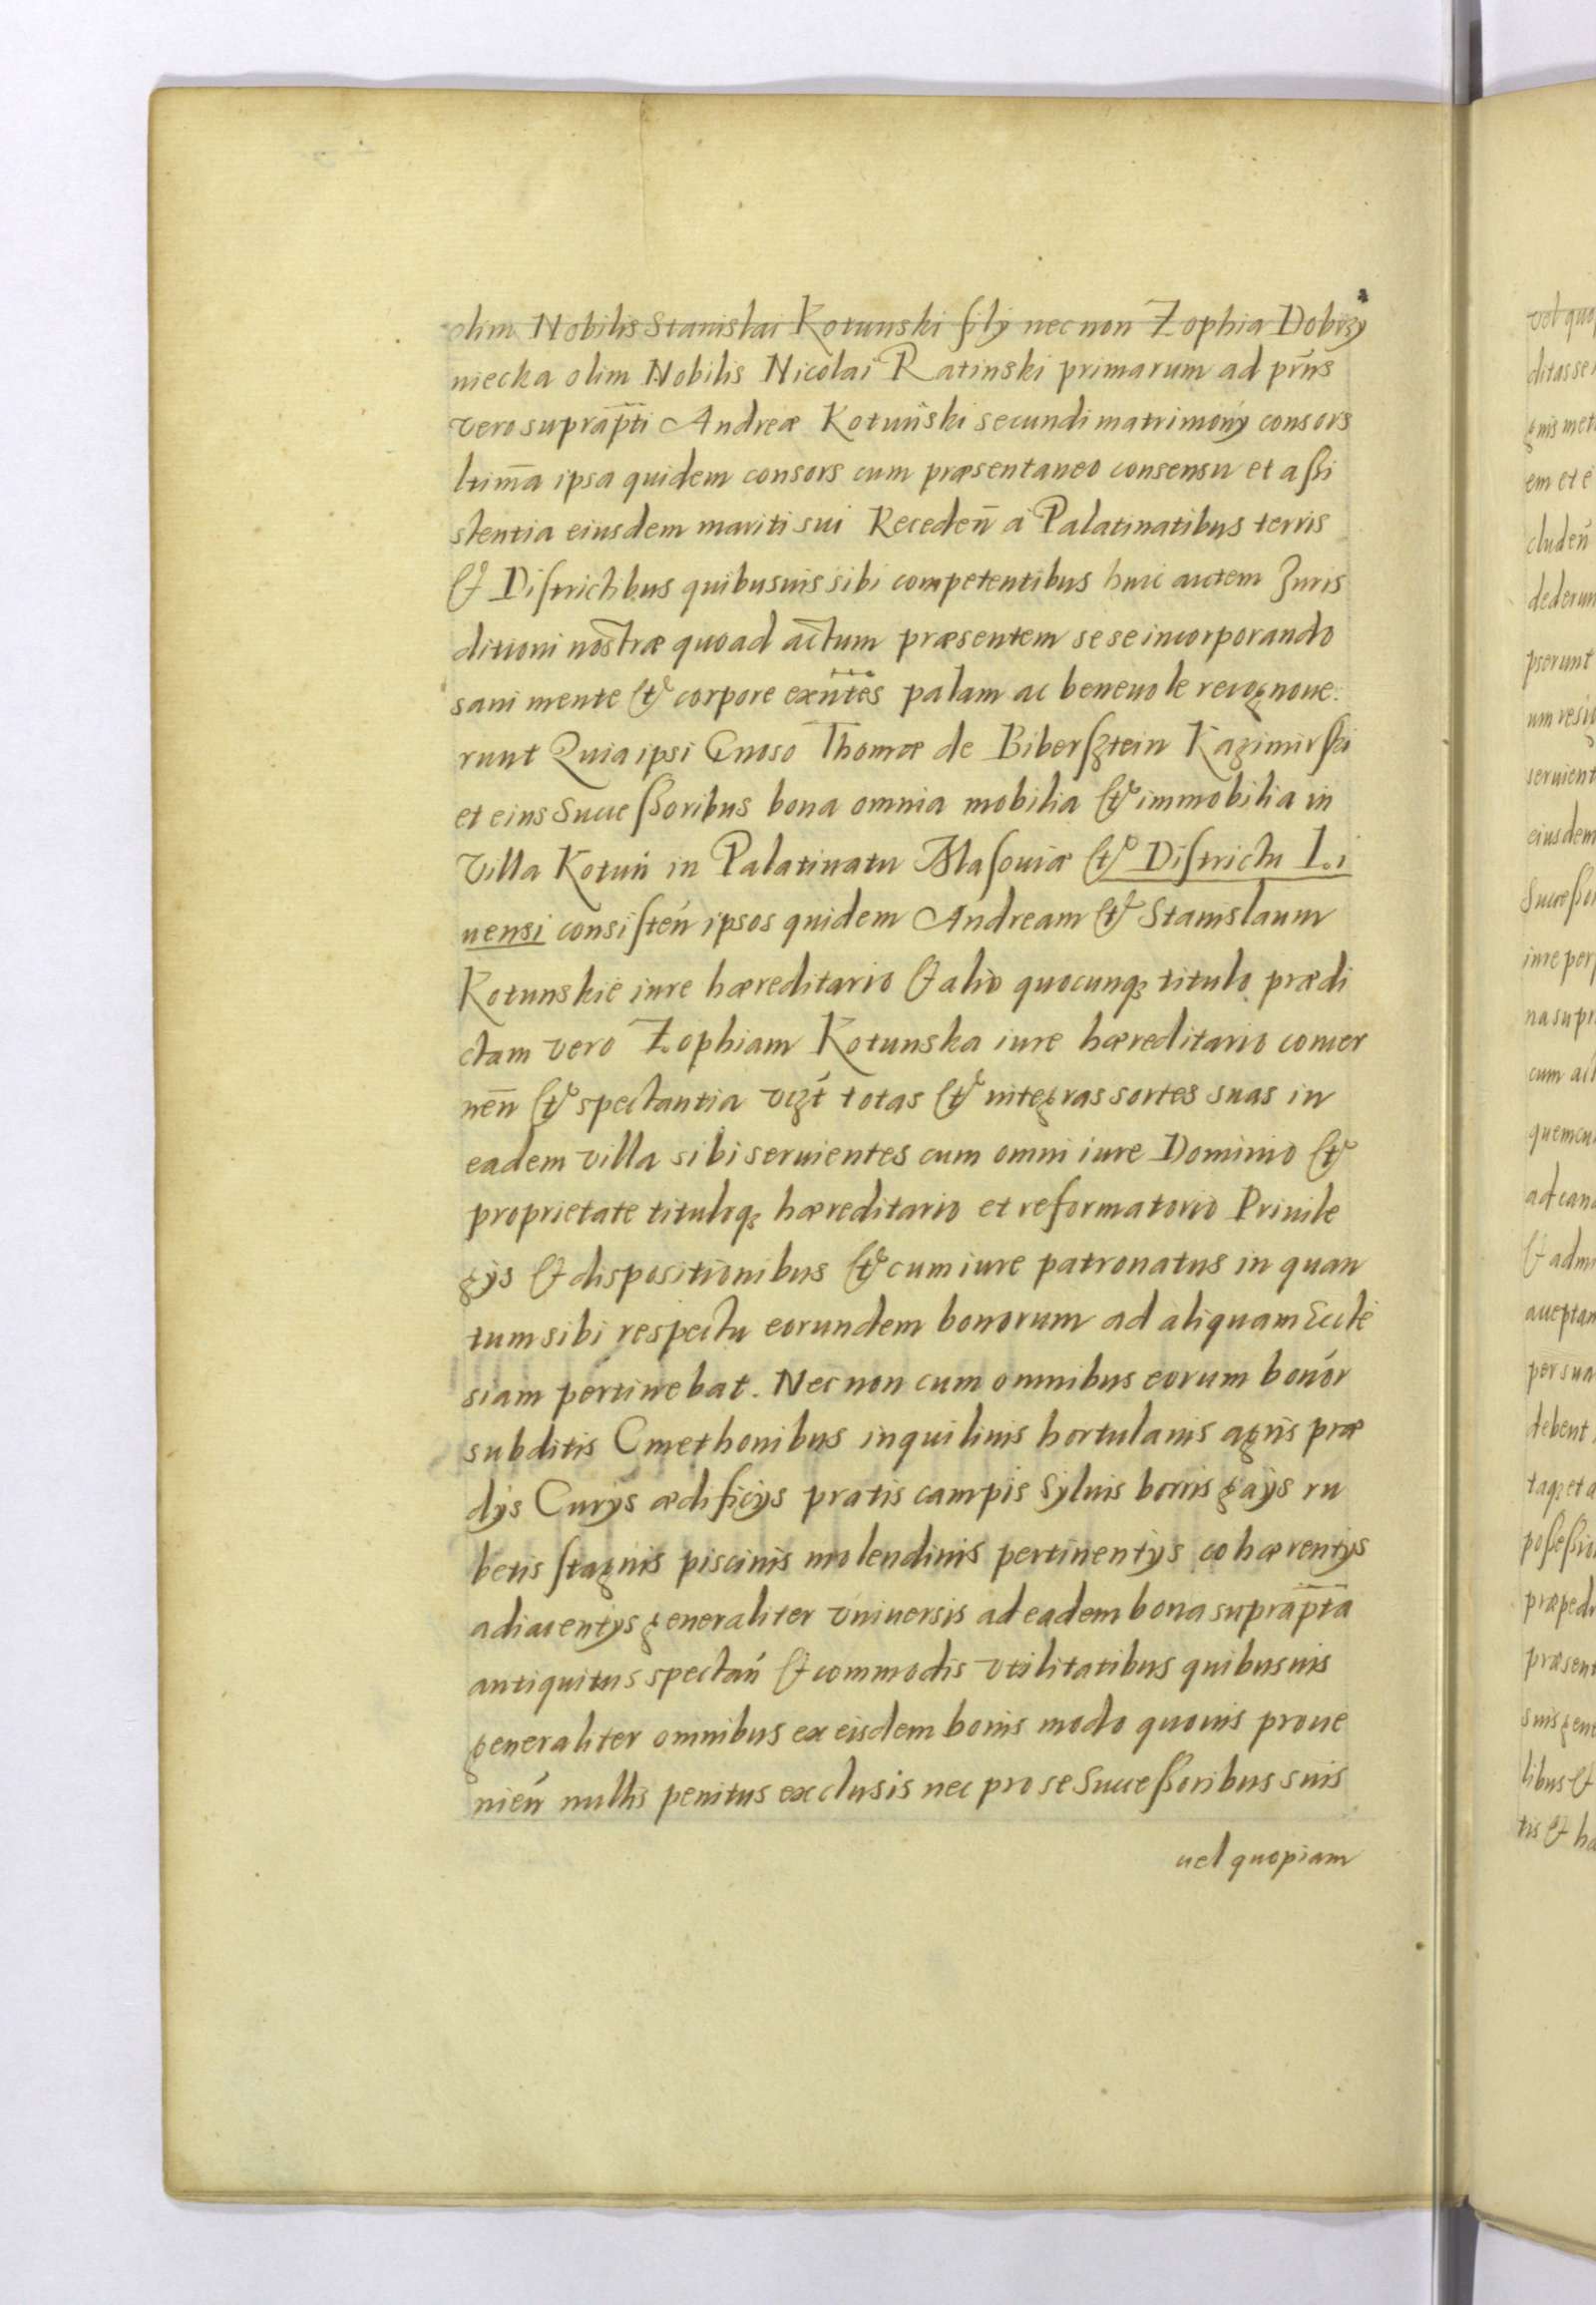 olim Nobilis Stanislai Kotunski filÿ nec non Zophia Dobrzy
niecka olim Nobilis Nicolai Ratinski primarum ad prns
vero suprapti Andreæ Kotuński secundi matrimonÿ consors
ltima ipsa quidem consors cum præsentaneo consensu et assi
stentia eiusdem mariti sui Receden a Palatinatibus terris
et Districtibus quibusuis sibi competentibus huic autem Iuris
ditioni nostræ quoad actum præsentem sese incorporando
sani mente et corpore exntes palam ac beneuole recognoue:
runt Quia ipsi Gnoso Thomæ de Bibersztein Kazimirski
et eius Successoribus bona omnia mobilia et immobilia in
Villa Kotuń in Palatinatu Masouiæ et Districtu Li
uensi consisten ipsos quidem Andream et Stanislaum
Kotunskie iure hæreditario et alio quocunq; titulo prædi
ctam vero Zophiam Kotunska iure hæreditario concer
nen et spectantia vczt totas et integras sortes suas in
eadem villa sibi seruientes cum omni iure Dominio et
proprietate tituloq; hæreditario et reformatorio Priuile
gÿs et dispositionibus et cum iure patronatus in quan
tum sibi respectu eorundem bonorum ad aliquam Eccle
siam pertinebat. Nec non cum omnibus eorum bonor
subditis Cmethonibus inquilinis hortulanis agris præ
dÿs Curÿs ædificÿs pratis campis Syluis borris gaÿs ru
betis stagnis piscinis molendinis pertinentÿs cohærentÿs
adiacentÿs generaliter vniuersis ad eadem bona suprapta
antiquitus spectan et commodis vtilitatibus quibusuis
generaliter omnibus ex eisdem bonis modo quouis proue
nien nullis penitus exclusis nec pro se Successoribus suis
uel quopiam